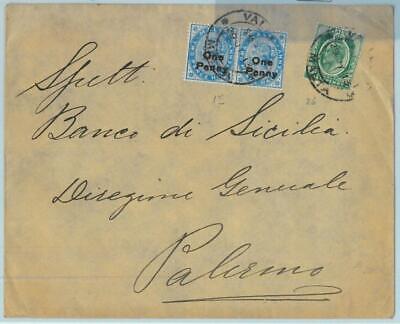 One Penny One Penny
VAL
Spett.
Banco di Sicilia
Diregime Generale
Palermo